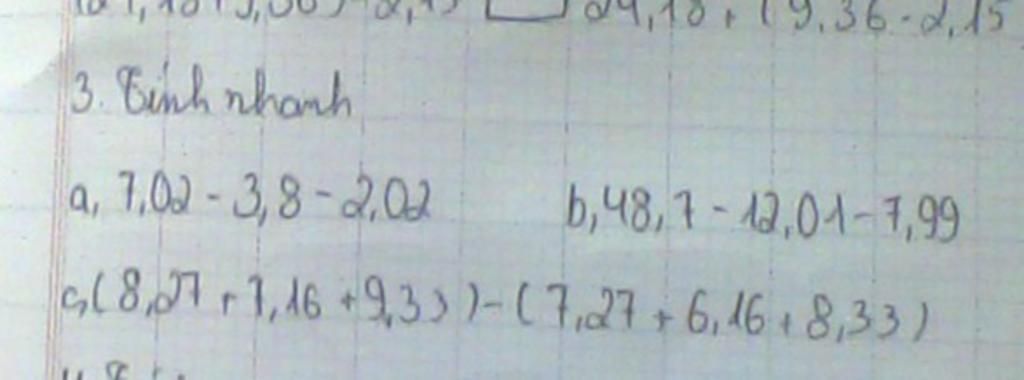 24,18 + (9,36 - 2,15
3. Tính nhanh
a, 7,02 - 3,8 - 2,02 b, 48,7 - 12,01 - 7,99
c, (8,27 + 7,16 + 9,33) - (7,27 + 6,16 + 8,33)